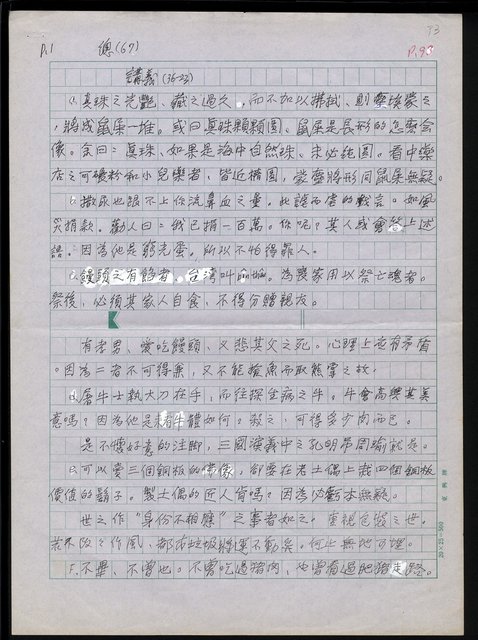 93
P.1 總(67) P.93
講義(36-23)
A.真珠之光艷、藏之過久,而不加以拂拭、則塵埃蒙之
,將成鼠屎一堆。或曰真珠顆顆圓、鼠屎是長形的怎麼會
像。余曰:真珠、如果是海中自然珠、未必純圓。看中藥
店之可磨粉和小兒藥者、皆近橢圓,蒙塵將形同鼠屎無疑。
b.撒尿也跟不上你流鼻血之量。此語而虛的戲言。如風
災捐款。勸人曰:我已捐一百萬。你呢?其人或會答上述
語。因為他是窮光蛋。所以不怕得罪人。
饅頭之有餡者。台灣叫 。為喪家用以祭亡魂者。
祭後、必須其家人自食、不得分贈親友。
有孝男、愛吃饅頭、又悲其父之死。心理上也有矛盾
。因為二者不可得兼,又不能捨魚而取熊掌之故。
d.屠牛士執大刀在手、而往探生病之牛。牛會高興其美
意嗎?因為他是看牛體如何。殺之,可得多少肉而已。
是不懷好意的注脚,三國演義中之孔明吊周瑜就是。
e.可以賣三個銅板的佛像,卻要在老土偶上栽四個銅板
價值的鬍子。製土偶的匠人肯嗎?因為仍虧本無疑。
世之作“身份不相應”之事者如之。重視包裝之世。
若不改之作風、都市垃圾將運不勤矣。何止無地可埋。
F.不畢、不曾也。不曾吃過豬肉,也曾看過肥豬走路。
25×20=500